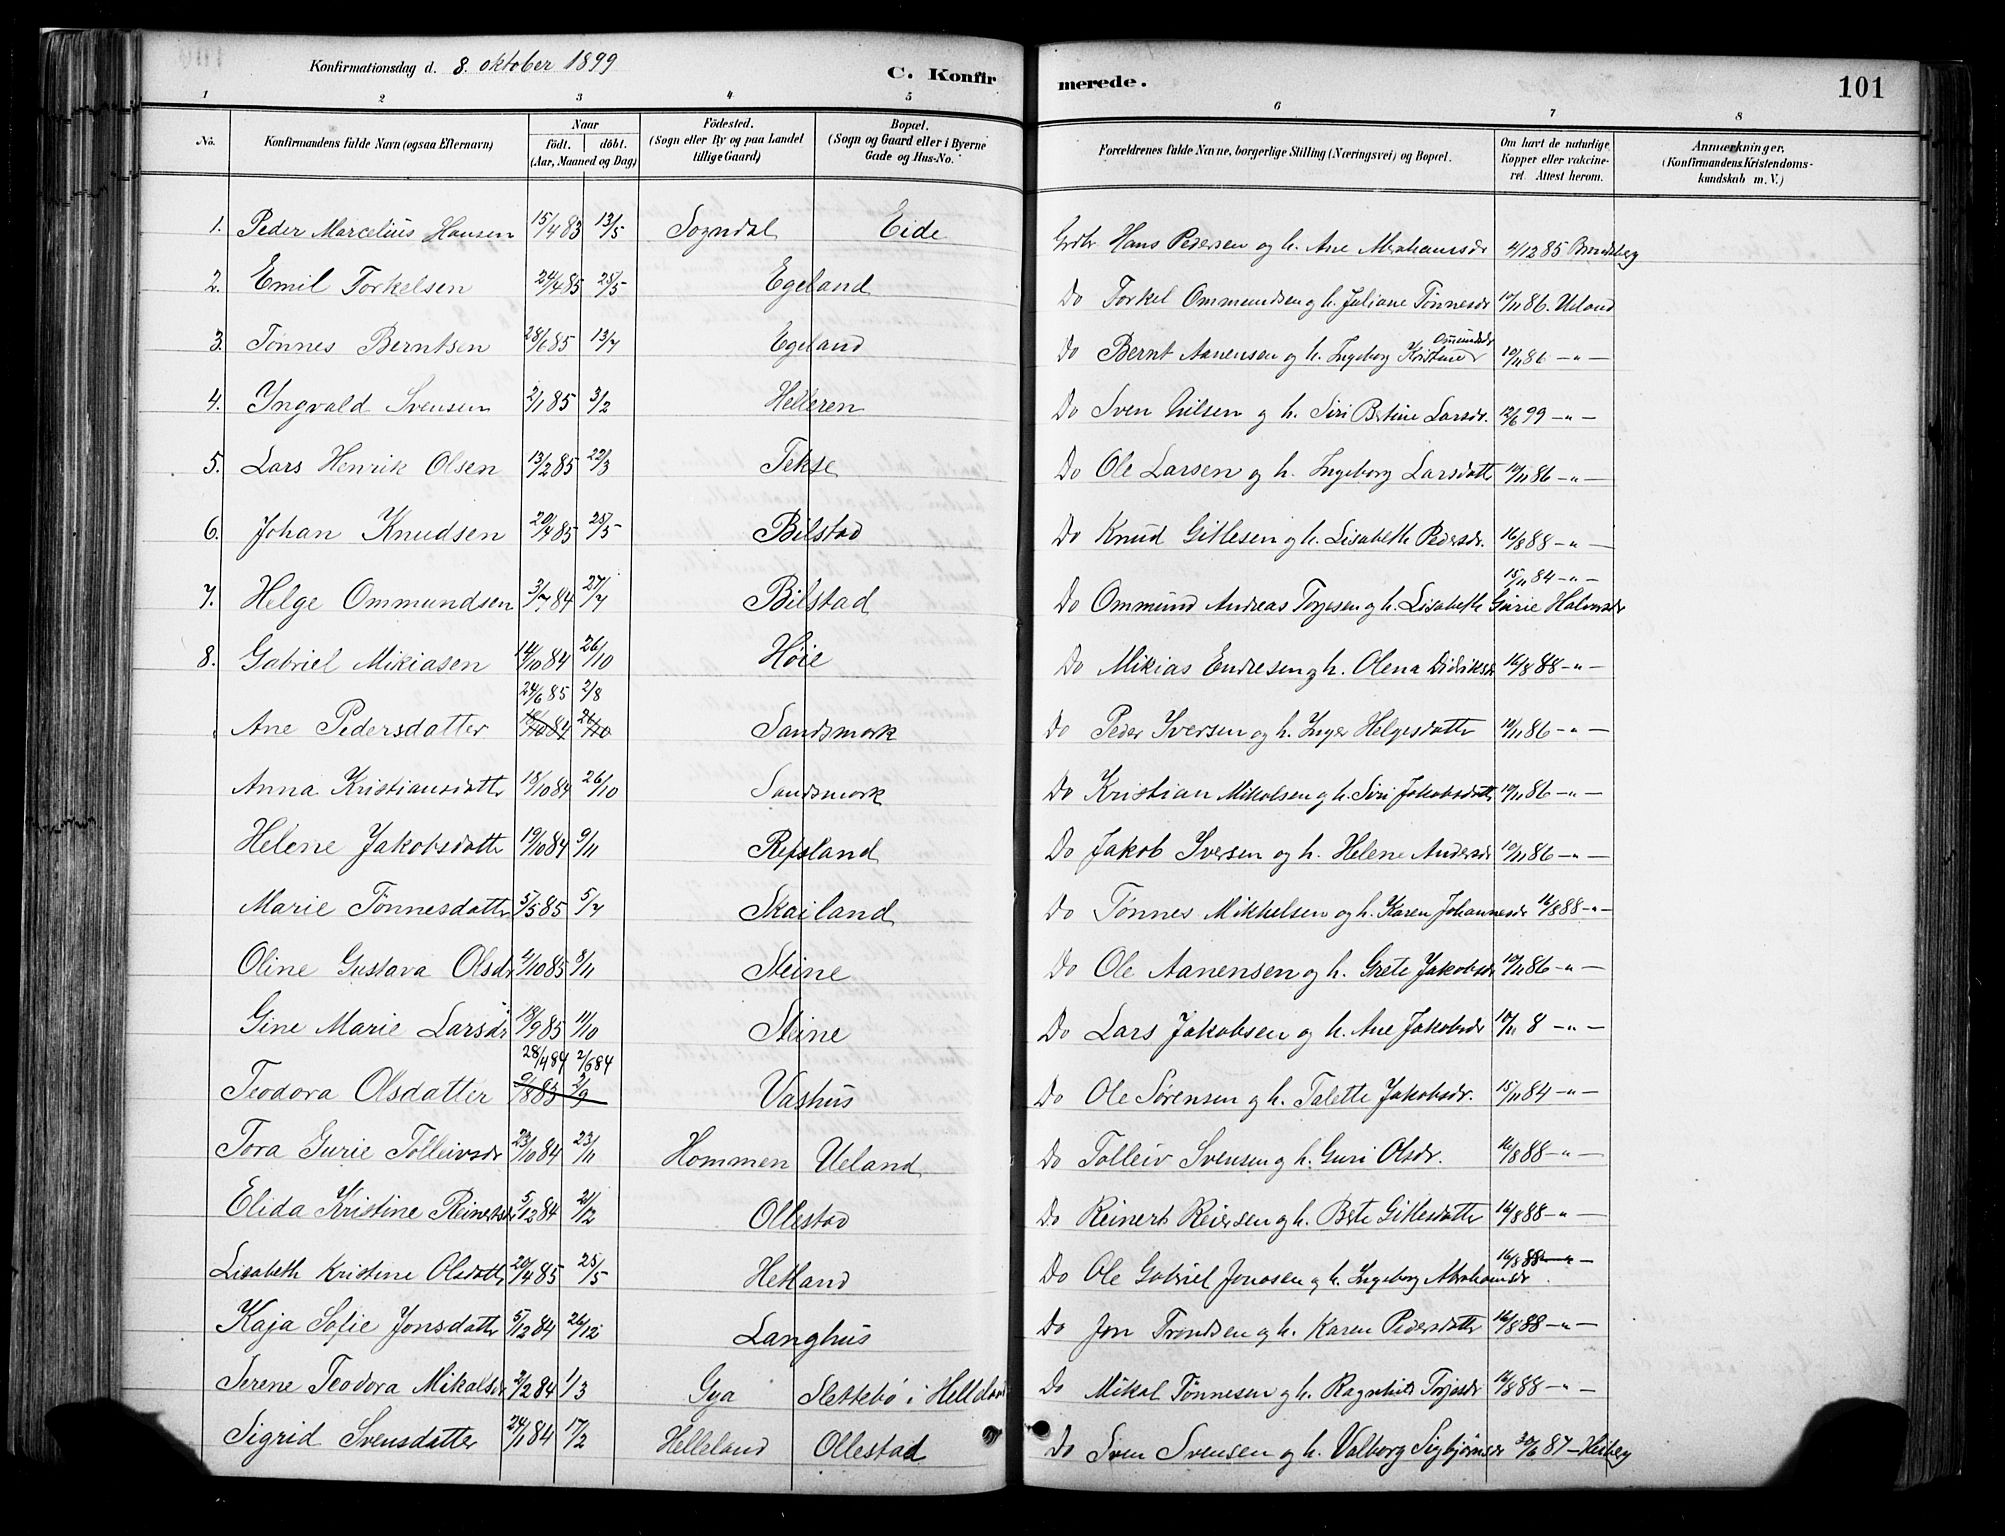 Konfirmationsdag d. 8. oktober 1899
C. Konfirmerede.
101
1 2 3 4 5 6 7 8
No. Konfirmandens fulde Navn (ogsaa Efternavn) Naar födt. döbt. (Aar, Maaned og Dag) Födested. (Sogn eller By og paa Landet tillige Gaard) Bopæl. (Sogn og Gaard eller i Byerne Gade og Hus-No. Forældrenes fulde Navne, borgerlige Stilling (Næringsvei) og Bopæl. Om havt de naturlige Kopper eller vakcineret. Attest herom. Anmærkninger. (Konfirmandens Kristendomskundskab m. V.)
1. Peder Marcelius Hansen 15/4 83 13/5 Sogndal Eide Grdbr Hans Pedersen og h. Ane Abrahamsdr 4/12 85
2. Emil Torkelsen 24/4 85 25/5 Egeland Do Torkel Ommundsen og h. Juliane Tönnesdr 10/11 86. Ueland
3. Tönnes Berntsen 28/6 85 13/7 Egeland Do Bernt Aanensen og h. Ingeborg Kristine Omundsdr 10/11 86 -„-
4. Yngvald Svensen 2/1 85 3/2 Helleren Do Sven Nilsen og h. Siri Bertine Larsdr. 12/6 99 -„-
5. Lars Henrik Olsen 13/2 85 22/3 Tekse Do Ole Larsen og h. Ingeborg Larsdatter 10/11 86 -„-
6. Johan Knudsen 20/4 85 25/5 Bilstad Do Knud Gitlesen og h. Lisabeth Pedersdr. 16/8 88 -„-
7. Helge Ommundsen 3/7 84 27/7 Bilstad Do Ommund Andreas Torjesen og h. Lisabeth Gurie Halvorsdr 15/11 84 -„-
8. Gabriel Mikiasen 14/10 84 26/10 Höie Do Mikias Endresen og h. Olena Didriksdr 16/8 88 -„-
24/6 85 2/8
Ane Pedersdatter 18/10 84 26/10 Sandsmork Do Peder Iversen og h. Inger Helgesdatter 10/11 86 -„-
Anna Kristiansdatter 18/10 84 26/10 Sandsmork Do Kristian Mikalsen og h. Siri Jakobsdatter 10/11 86 -„-
Helene Jakobsdatter 19/10 84 9/11 Repsland Do Jakob Iversen og h. Helene Andersdr 10/11 86 -„-
Marie Tönnesdatter 3/5 85 5/7 Skailand Do Tönnes Mikkelsen og h. Karen Johannesdr 16/8 88 -„-
Oline Gustava Olsdr 9/10 85 8/11 Steine Do Ole Aanensen og h. Grete Jakobsdr 10/11 86 -„-
Gine Marie Larsdr 18/9 85 11/10 Steine Do Lars Jakobsen og h. Ane Jakobsdr 10/11 8 -„-
28/4 84 2/6 84
Teodora Olsdatter 9/8 83 2/9 Vashus Do Ole Sörensen og h. Talette Jakobsdr. 15/11 84 -„-
Tora Gurie Tolleivsdr 23/10 84 23/11 Hommen Ueland Do Tolleiv Svensen og h. Guri Olsdr. 16/8 88 -„-
Elida Kristine Reinertsdr 5/12 84 21/12 Ollestad Do Reinert Reiersen og h. Berte Gitlesdatter 16/8 88 -„-
Lisabeth Kristine Olsdatter 20/4 85 25/5 Hetland Do Ole Gabriel Jonassen og h. Ingeborg Abrahamsdr 16/8 88 -„-
Kaja Sofie Jonsdatter 5/12 84 26/12 Langhus Do Jon Trondsen og h. Karen Pedersdatter 16/8 88 -„-
Serene Teodora Mikalsdr 2/2 84 1/3 Gya Slettebö i Helleland Do Mikal Tönnesen og h. Ragnhild Torjesdr 16/8 88 -„-
Sigrid Svensdatter 24/1 84 17/2 Helleland Ollestad Do Sven Svensen og h. Valborg Sigbjörnsdr 30/6 87 - Heiberg